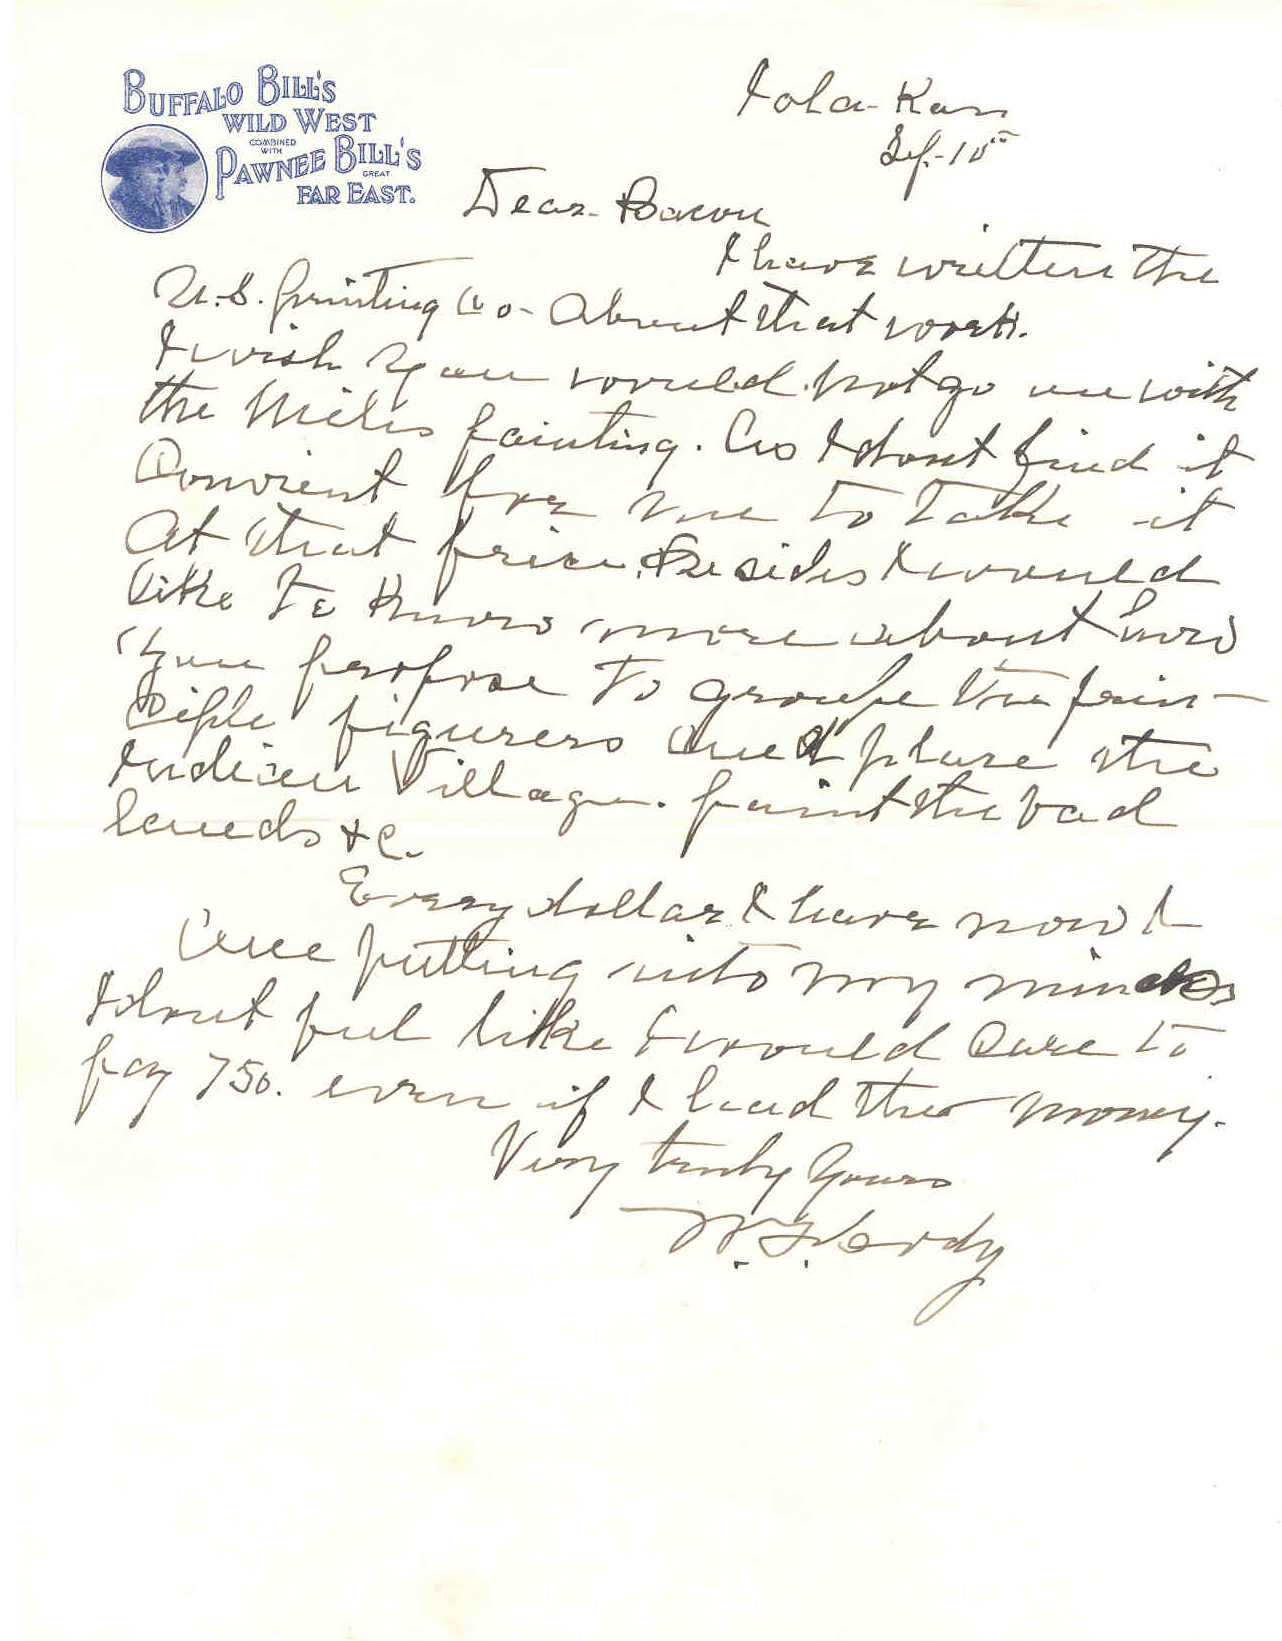 BUFFALO BILL'S
WILD WEST
COMBINED
WITH
PAWNEE BILL'S
GREAT
FAR EAST.
Iola-Kan
Sep.-10th
Dear-Bacon
I have written the
U.S. printing Co- About that work.
I wish you would not go on with
the Miles painting. As I dont find it
Convient for me to take it
At that price. Besides I would
like to know more about how
you propose to groupe the prin-
ciple figurers and place the
Indian Village. paint the bad
lands &C.
Every dollar I have now I
Am putting into my mines
I dont feel like I would Care to
pay 750. even if I had the money.
Very truly yours
W. F. Cody